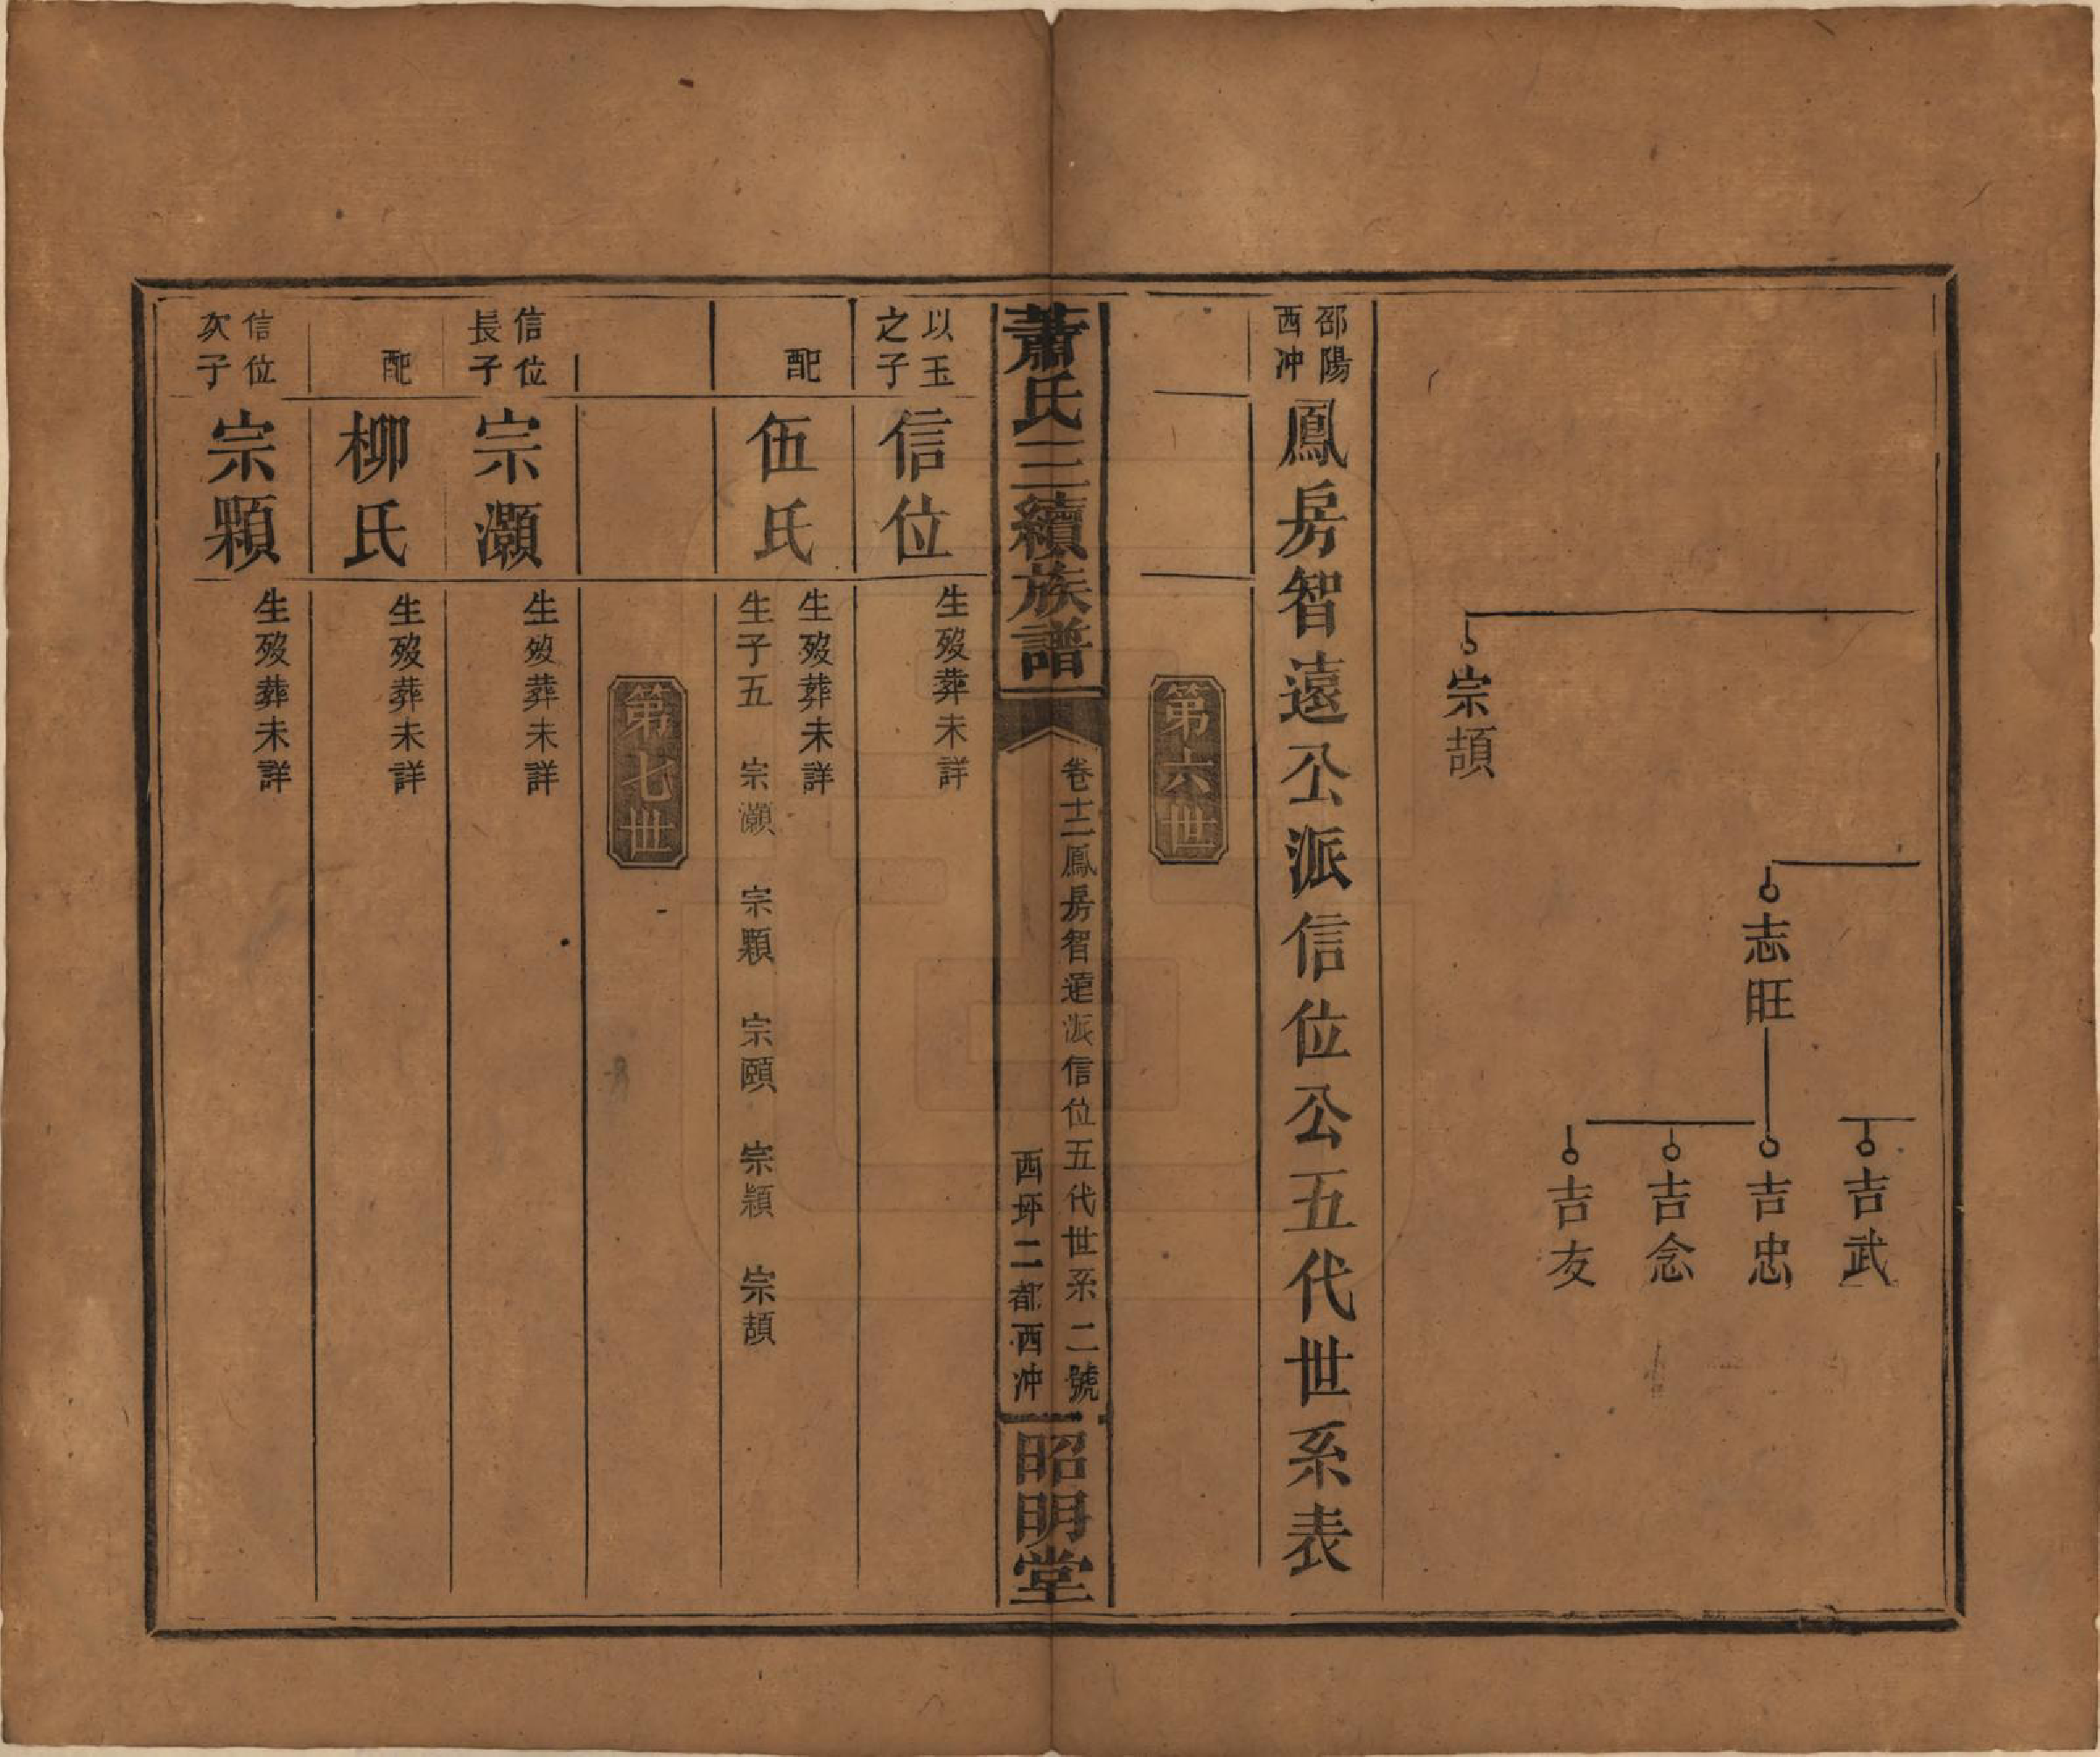 吉武
志旺
吉忠
吉念
吉友
宗頡
邵陽西冲
鳳房智遠公派信位公五代世系表
第六世
蕭氏三續族譜
卷十二鳳房智遠派信位五代世系 二號
西坪二都西冲
昭明堂
以玉之子
信位
生歿葬未詳
配
伍氏
生歿葬未詳
生子五 宗灝 宗顆 宗頤 宗穎 宗頡
第七世
信位長子
宗灝
生歿葬未詳
配
柳氏
生歿葬未詳
信位次子
宗顆
生歿葬未詳